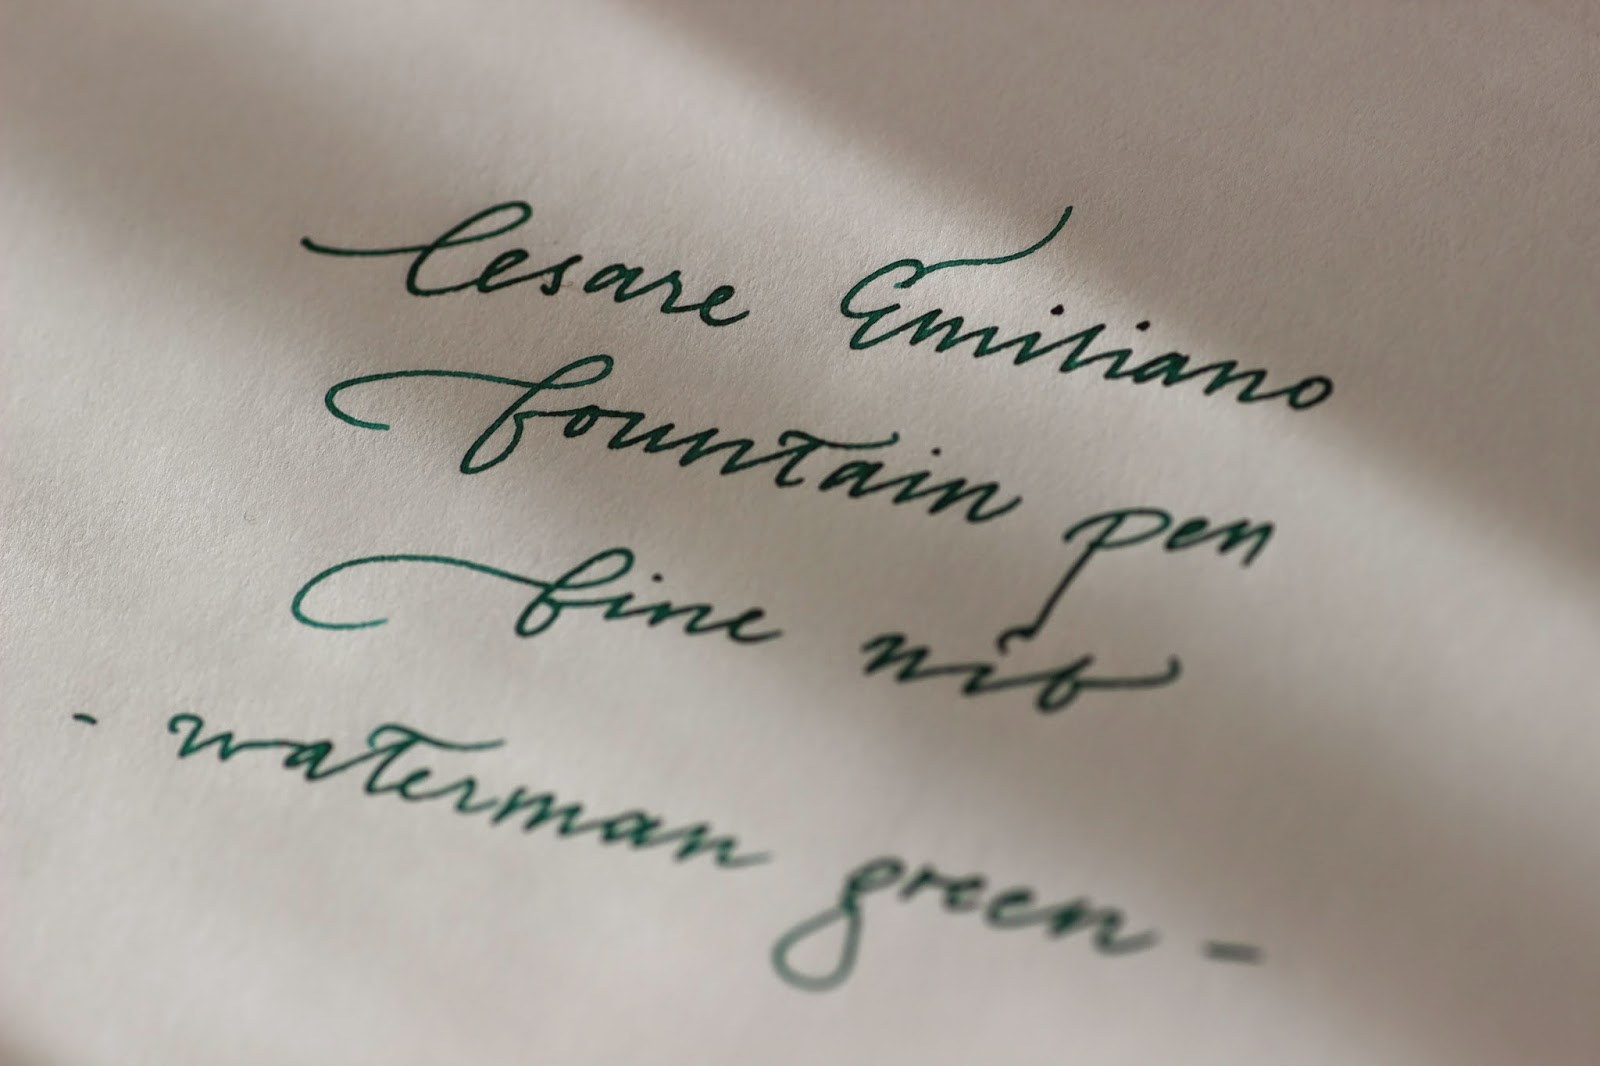 Cesare Emiliano
fountain pen
fine nib
- waterman green -